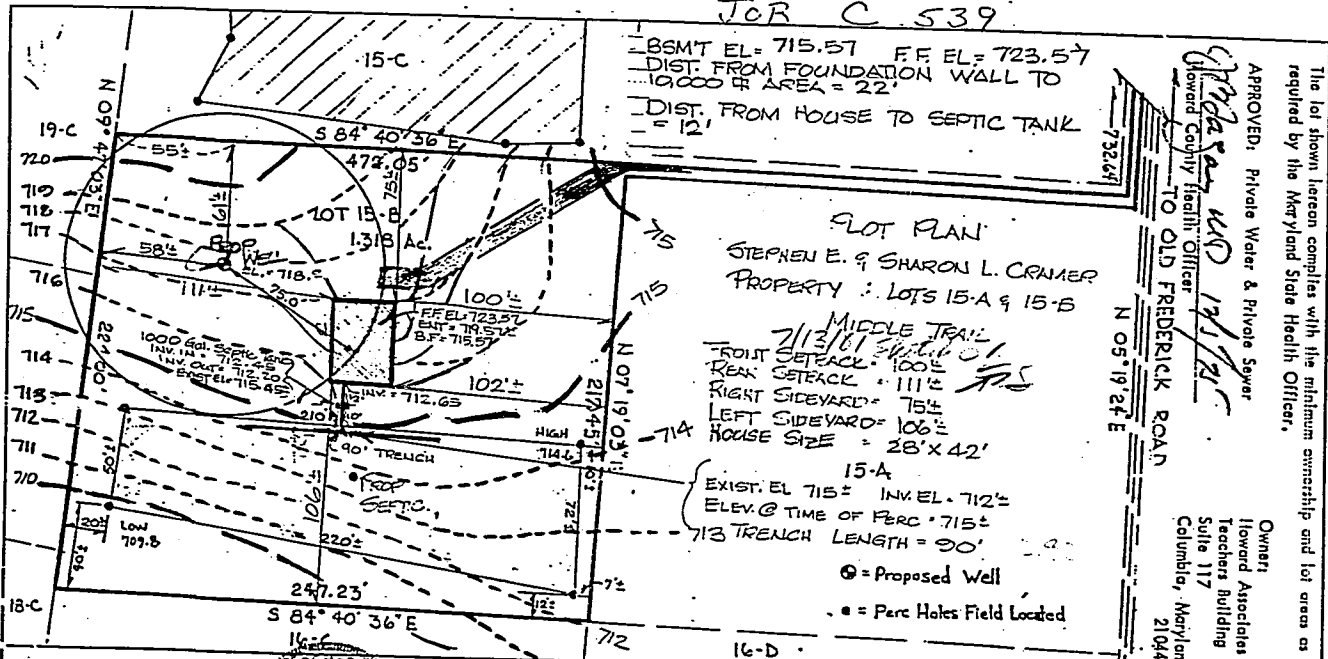 JOR C 539
BSMT EL= 715.57 F.F. EL= 723.57
DIST. FROM FOUNDATION WALL TO
10,000 AREA = 22'
DIST. FROM HOUSE TO SEPTIC TANK
= 12'
15-C
19-C
N 09° 47' 03" E
S 84° 40' 36" E
472.05'
55'±
75'±
61'±
LOT 15-B
1.318 Ac.
720
719
718
717
716
715
714
713
712
711
710
PROP
WELL
EL. = 718.
58'±
111'±
75.0'
100'±
F.F. EL= 723.57
ENT = 719.57±
B.F= 715.57
1000 Gal. Septic Tank
INV. IN = 712.
INV. OUT = 712.20
EXIST EL= 715.45
102'±
INV. = 712.65
12'
10'
210'±
224.00'
90' TRENCH
HIGH
714.6
PROP
SEPTIC
106'±
50'±
72'±
20'±
LOW
709.8
220'±
7'±
12'±
247.23'
S 84° 40' 36" E
18-C
16-C
16-D
712
715
715
714
713
N 07° 19' 03"
217.45'
732.64'
TO OLD FREDERICK ROAD
N 05° 19' 24" E
PLOT PLAN
STEPHEN E. & SHARON L. CRAMER
PROPERTY : LOTS 15-A & 15-B
MIDDLE TRAIL
FRONT SETBACK = 100'±
REAR SETBACK = 111'±
RIGHT SIDEYARD = 75'±
LEFT SIDEYARD = 106'±
HOUSE SIZE = 28' X 42'
15-A
EXIST. EL 715± INV. EL. = 712'±
ELEV. @ TIME OF PERC = 715±
TRENCH LENGTH = 90'
= Proposed Well
= Perc Holes Field Located
The lot shown hereon complies with the minimum ownership and lot areas as
required by the Maryland State Health Officer.
APPROVED: Private Water & Private Sewer
Howard County Health Officer
Owner:
Howard Associates
Teachers Building
Suite 117
Columbia, Maryland
21044